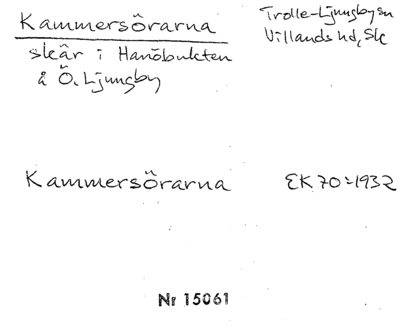 Kammersörarna
skär i Hanöbukten
å Ö. Ljungby
Trolle-Ljungby sn
Villands hd, Sk
Kammersörarna EK 70:1932
Nr 15061